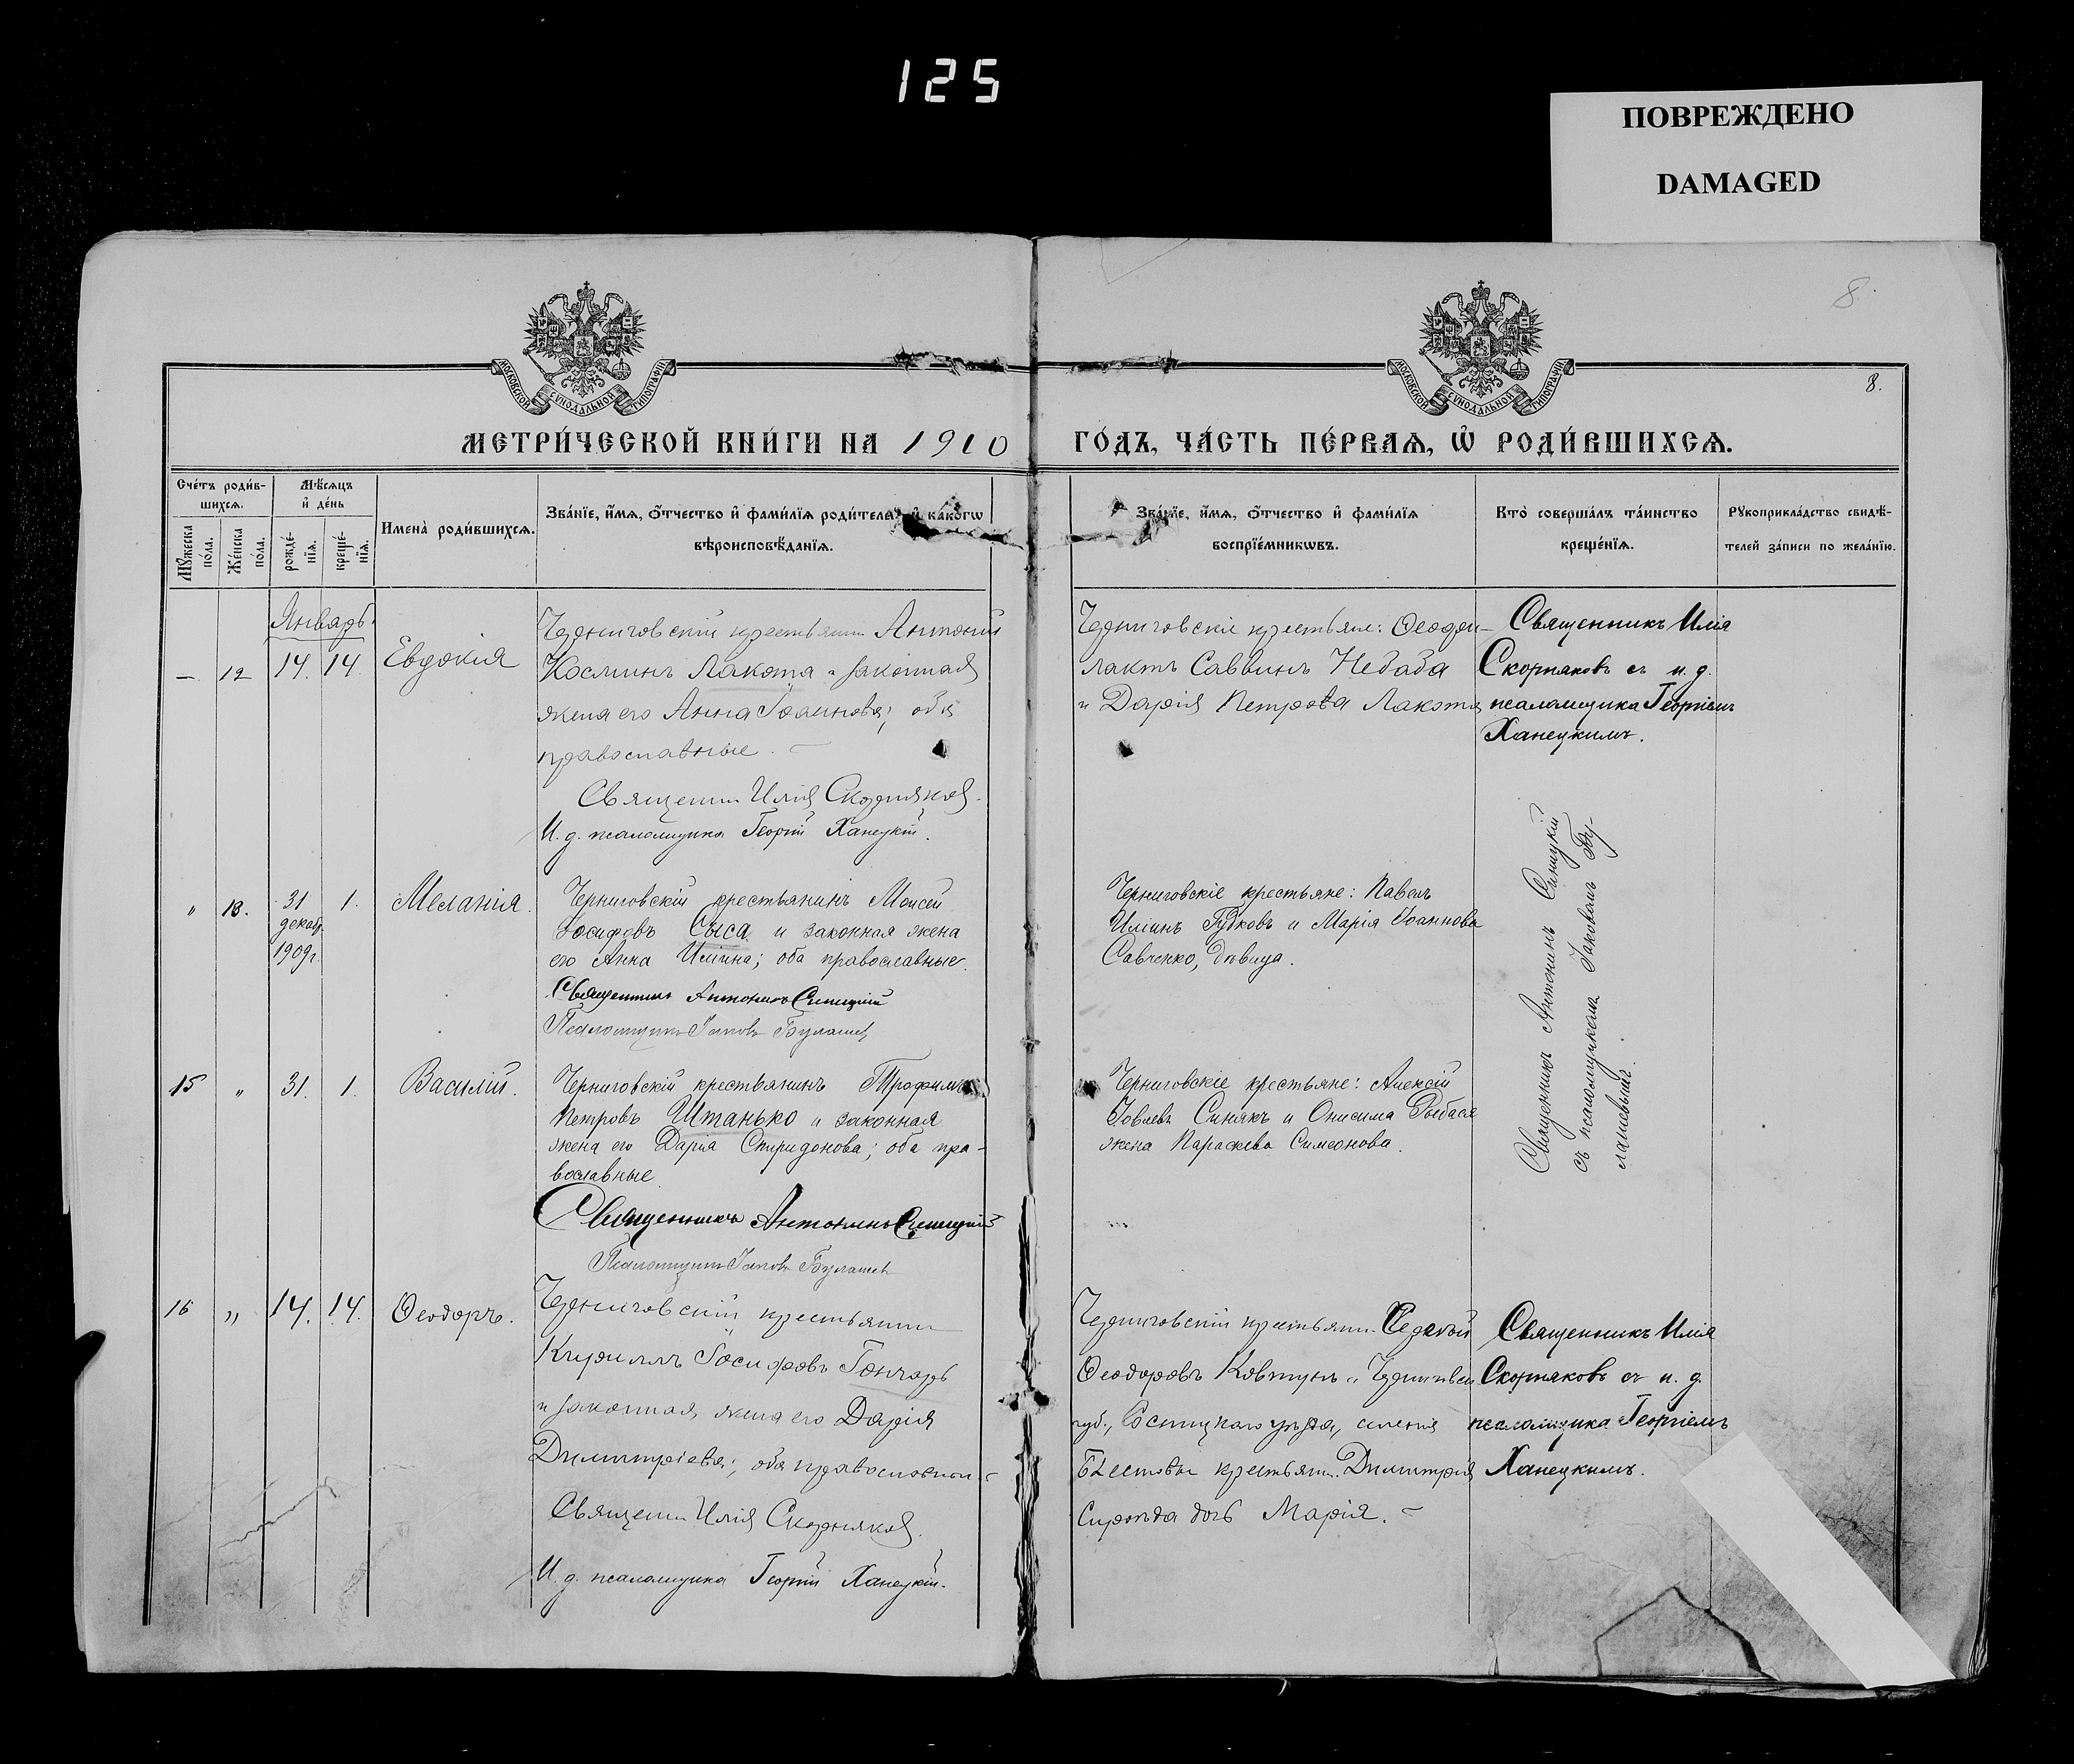 125
ПОВРЕЖДЕНО
DAMAGED
8.
МОСКОВСКОЙ СѴНОДАЛЬНОЙ ТИПОГРАФІИ
МОСКОВСКОЙ СѴНОДАЛЬНОЙ ТИПОГРАФІИ
8.
МЕТРИ́ЧЕСКОЙ КНИ́ГИ НА 1910 ГО́ДЪ, ЧА́СТЬ ПЕ́РВАѦ, Ѿ РОДИ́ВШИХСѦ.
Сче́тъ роди́в-
шихсѧ.
Мѣ́сѧцъ
и҆ де́нь
Мꙋжеска по́ла.
Же́нска по́ла.
рожде́-
нїѧ.
креще́-
нїѧ.
Имена̀ роди́вшихсѧ.
Зва́нїе, и҆́мѧ, ѻ҆́тчество и҆ фами́лїѧ роди́телей, и҆ како́гѡ
вѣроисповѣ́данїѧ.
Зва́нїе, и҆́мѧ, ѻ҆́тчество и҆ фами́лїѧ
воспрїе́мникѡвъ.
Кто̀ соверша́лъ та́инство
креще́нїѧ.
Рꙋкоприкла́дство свидѣ́-
телей за́писи по жела́нїю.
Январь.
— 12 14. 14. Евдокія
Черниговскій крестьянин Антоній
Космин Лакота и законная
жена его Анна Іоаннова; оба
православные.
Священник Илія Скорняков.
И. д. псаломщика Георгій Ханецкій.
Черниговскіе крестьяне: Ѳеофи-
лактъ Саввинъ Небаба
и Дарія Петрова Лакота
Священникъ Илія
Скорняковъ съ и. д.
псаломщика Георгіемъ
Ханецкимъ.
" 13. 31 декаб. 1909г. 1. Меланія.
Черниговскій крестьянинъ Моисей
Іосифовъ Сыса и законная жена
его Анна Иліина; оба православные.
Священникъ Антонинъ Синицкій
Псаломщикъ Іаковъ Булашев
Черниговскіе крестьяне: Павелъ
Иліинъ Губковъ и Марія Іоаннова
Савченко, дѣвица.
Священникъ Антонинъ Синицкій
съ псаломщикомъ Іаковомъ Бу-
лашевымъ.
15 " 31. 1. Василій.
Черниговскій крестьянинъ Трофимъ
Петровъ Штанько и законная
жена его Дарія Спиридонова; оба пра-
вославные.
Священникъ Антонинъ Синицкій
Псаломщикъ Іаковъ Булашев
Черниговскіе крестьяне: Алексій
Іовлевъ Синякъ и Онисима Рыбася
жена Параскева Симеонова.
16 " 14. 14. Ѳеодоръ.
Черниговскій крестьянин
Кириллъ Іосифовъ Гончаръ
и законная жена его Дарія
Димитріева; оба православные
Священник Илія Скорняков.
И. д. псаломщика Георгій Ханецкій.
Черниговскій крестьянин
Ѳеодоровъ Ковтунъ и Чернигов.
губ., уѣзда, селенія
крестьян. Димитрія
дочь Марія.
Священникъ Илія
Скорняковъ съ и. д.
псаломщика Георгіемъ
Ханецкимъ.